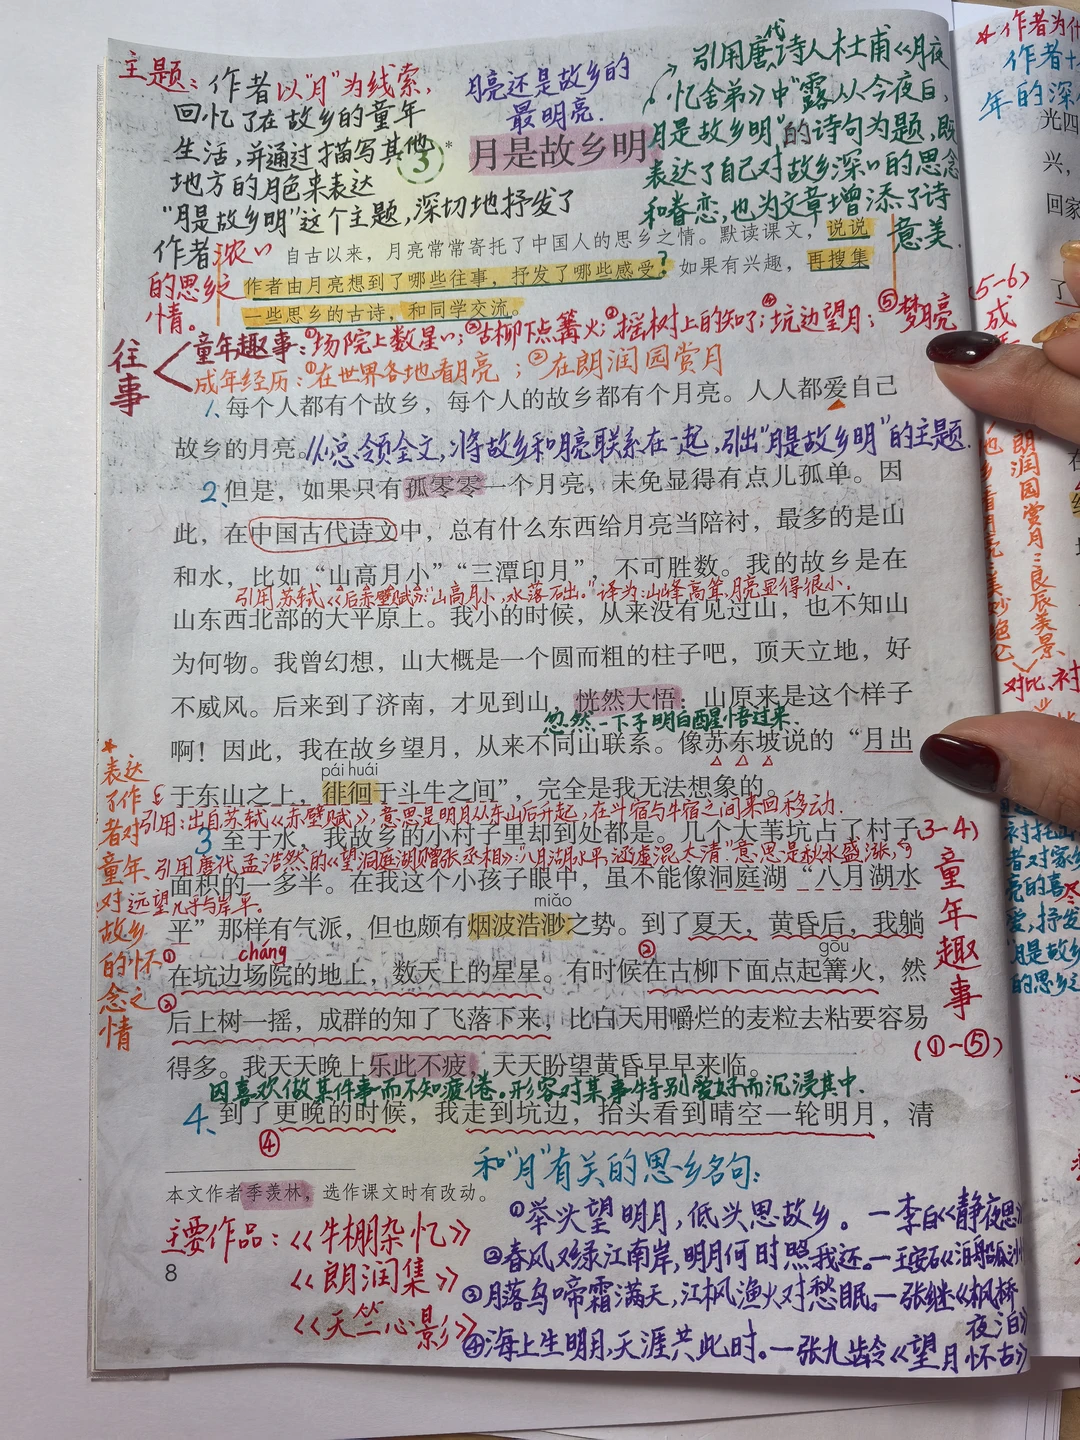 主题：作者以"月"为线索，
回忆了在故乡的童年
生活，并通过描写其他
地方的月色来表达
"月是故乡明"这个主题，深切地抒发了
作者浓浓
的思乡之
情。
月亮还是故乡的
最明亮.
③* 月是故乡明
引用唐代诗人杜甫《月夜
忆舍弟》中"露从今夜白，
月是故乡明"的诗句为题，既
表达了自己对故乡深深的思念
和眷恋，也为文章增添了诗
意美.
自古以来，月亮常常寄托了中国人的思乡之情。默读课文，说说
作者由月亮想到了哪些往事，抒发了哪些感受？如果有兴趣，再搜集
一些思乡的古诗，和同学交流。
往事
童年趣事：①场院上数星星；②古柳下点篝火；③摇树上的知了；④坑边望月；⑤梦月亮
成年经历：①在世界各地看月亮；②在朗润园赏月
1、每个人都有个故乡，每个人的故乡都有个月亮。人人都爱自己
故乡的月亮。
总领全文，将故乡和月亮联系在一起，引出"月是故乡明"的主题.
2、但是，如果只有孤零零一个月亮，未免显得有点儿孤单。因
此，在中国古代诗文中，总有什么东西给月亮当陪衬，最多的是山
和水，比如“山高月小”“三潭印月”，不可胜数。我的故乡是在
引用苏轼《后赤壁赋》："山高月小，水落石出。"译为：山峰高耸，月亮显得很小.
山东西北部的大平原上。我小的时候，从来没有见过山，也不知山
为何物。我曾幻想，山大概是一个圆而粗的柱子吧，顶天立地，好
不威风。后来到了济南，才见到山，恍然大悟：山原来是这个样子
忽然一下子明白醒悟过来.
啊！因此，我在故乡望月，从来不同山联系。像苏东坡说的“月出
pái huái
于东山之上，徘徊于斗牛之间”，完全是我无法想象的。
引用：出自苏轼《赤壁赋》，意思是明月从东山后升起，在斗宿与牛宿之间来回移动.
3 至于水，我故乡的小村子里却到处都是。几个大苇坑占了村子
引用唐代孟浩然的《望洞庭湖赠张丞相》："八月湖水平，涵虚混太清"意思是秋水盛涨，
面积的一多半。在我这个小孩子眼中，虽不能像洞庭湖“八月湖水
远望几乎与岸平。
miǎo
平”那样有气派，但也颇有烟波浩渺之势。到了夏天，黄昏后，我躺
cháng
gōu
在坑边场院的地上，数天上的星星。有时候在古柳下面点起篝火，然
后上树一摇，成群的知了飞落下来，比白天用嚼烂的麦粒去粘要容易
得多。我天天晚上乐此不疲，天天盼望黄昏早早来临。
因喜欢做某件事而不知疲倦。形容对某事特别爱好而沉浸其中.
4、到了更晚的时候，我走到坑边，抬头看到晴空一轮明月，清
①
②
③
④
*表达
了作
者对
童年、
对
故乡
的怀
念之
情
(3-4)
童年趣事
(①-⑤)
本文作者季羡林，选作课文时有改动。
主要作品：《牛棚杂忆》
《朗润集》
《天竺心影》
8
和"月"有关的思乡名句：
①举头望明月，低头思故乡。—李白《静夜思》
②春风又绿江南岸，明月何时照我还。—王安石《泊船瓜洲
③月落乌啼霜满天，江枫渔火对愁眠。—张继《枫桥
夜泊》
④海上生明月，天涯共此时。—张九龄《望月怀古》
*作者为什
年的深
光四
兴，
回家
(5-6)
成
朗润园赏月：良辰美景
对比、衬